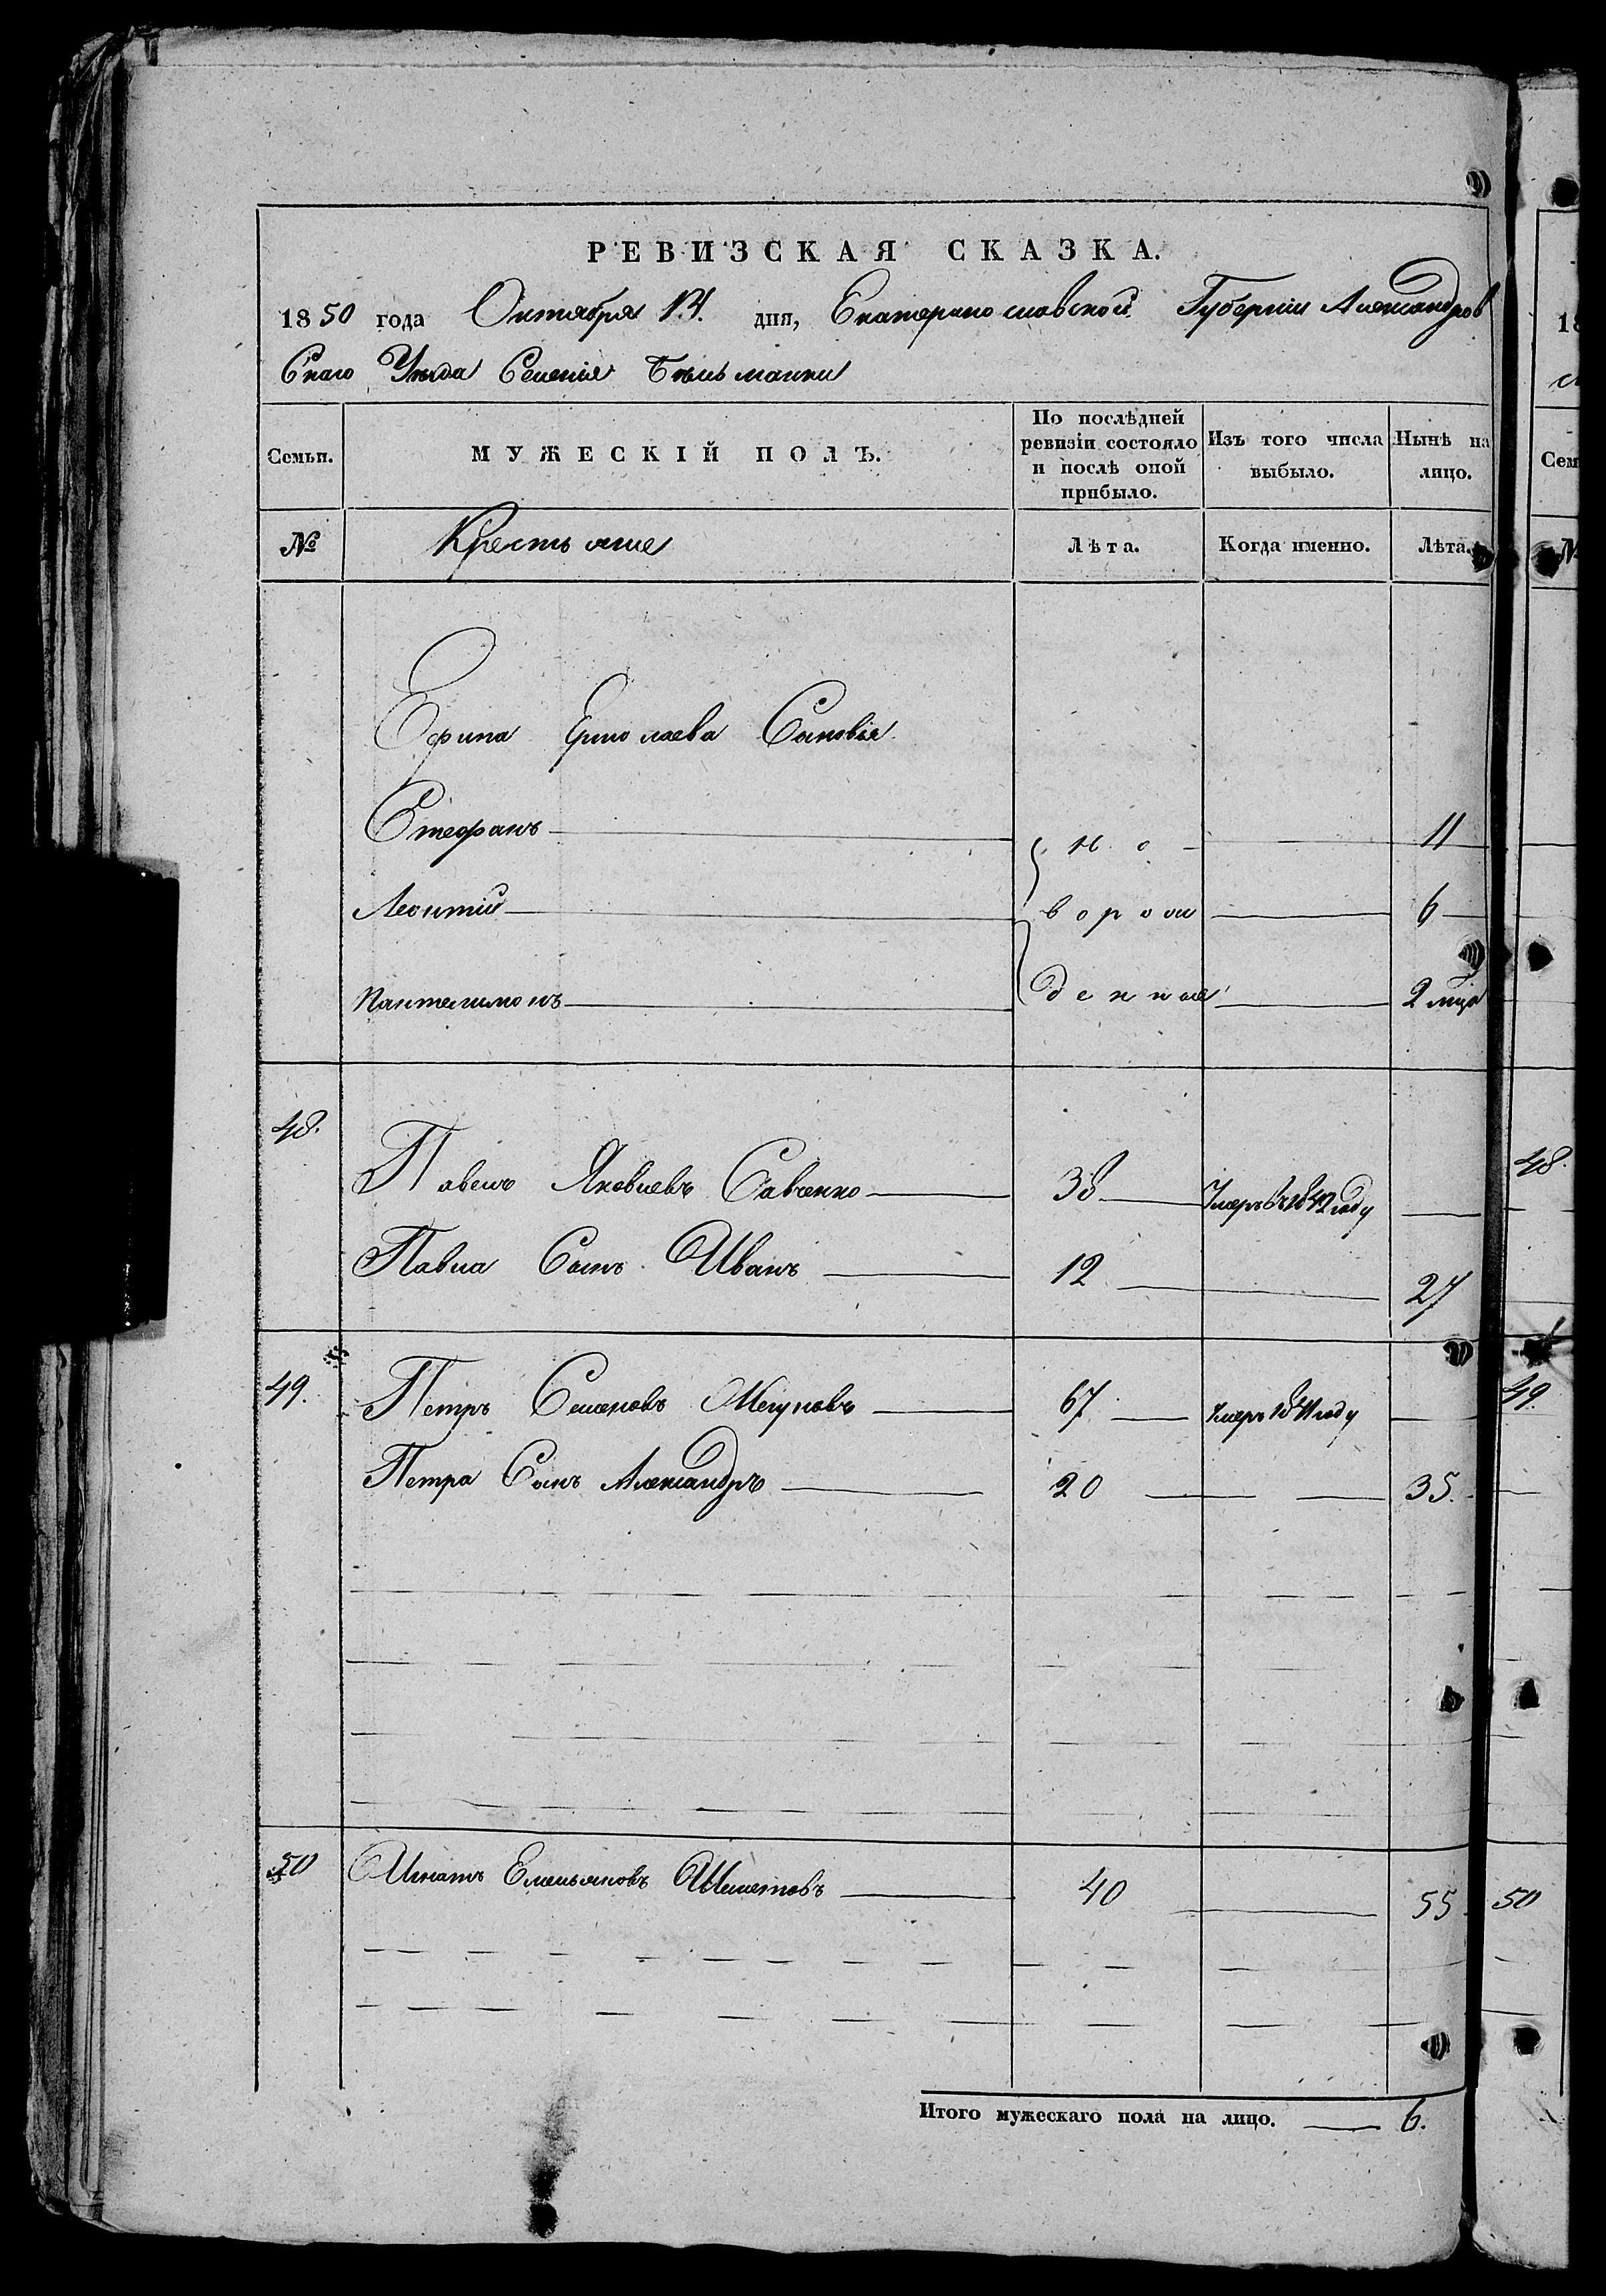 РЕВИЗСКАЯ СКАЗКА.
1850 года Октября 14. дня, Екатеринославской Губерніи Александров
Скаго Уѣзда Селенія Бѣльманки
Семьи.
МУЖЕСКІЙ ПОЛЪ.
По послѣдней ревизіи состояло и послѣ оной прибыло.
Изъ того числа выбыло.
Нынѣ на лицо.
№ Крестьяне Лѣта. Когда именно. Лѣта.
Ефима Ермолаева Сыновья
Стефанъ но 11
Леонтій ворож 6
Пантелимонъ денные 2 мца
48. Павелъ Яковлевъ Савченко 38 Умеръ въ 1842 году
Павла Сынъ Иванъ 12 27
49. Петръ Семеновъ Мегуновъ 67 Умеръ 1841 году
Петра Сынъ Александръ 20 35.
50 Игнатъ Емельяновъ 40 55
Итого мужескаго пола на лицо. 6.
18
Сем
№
48.
49.
50